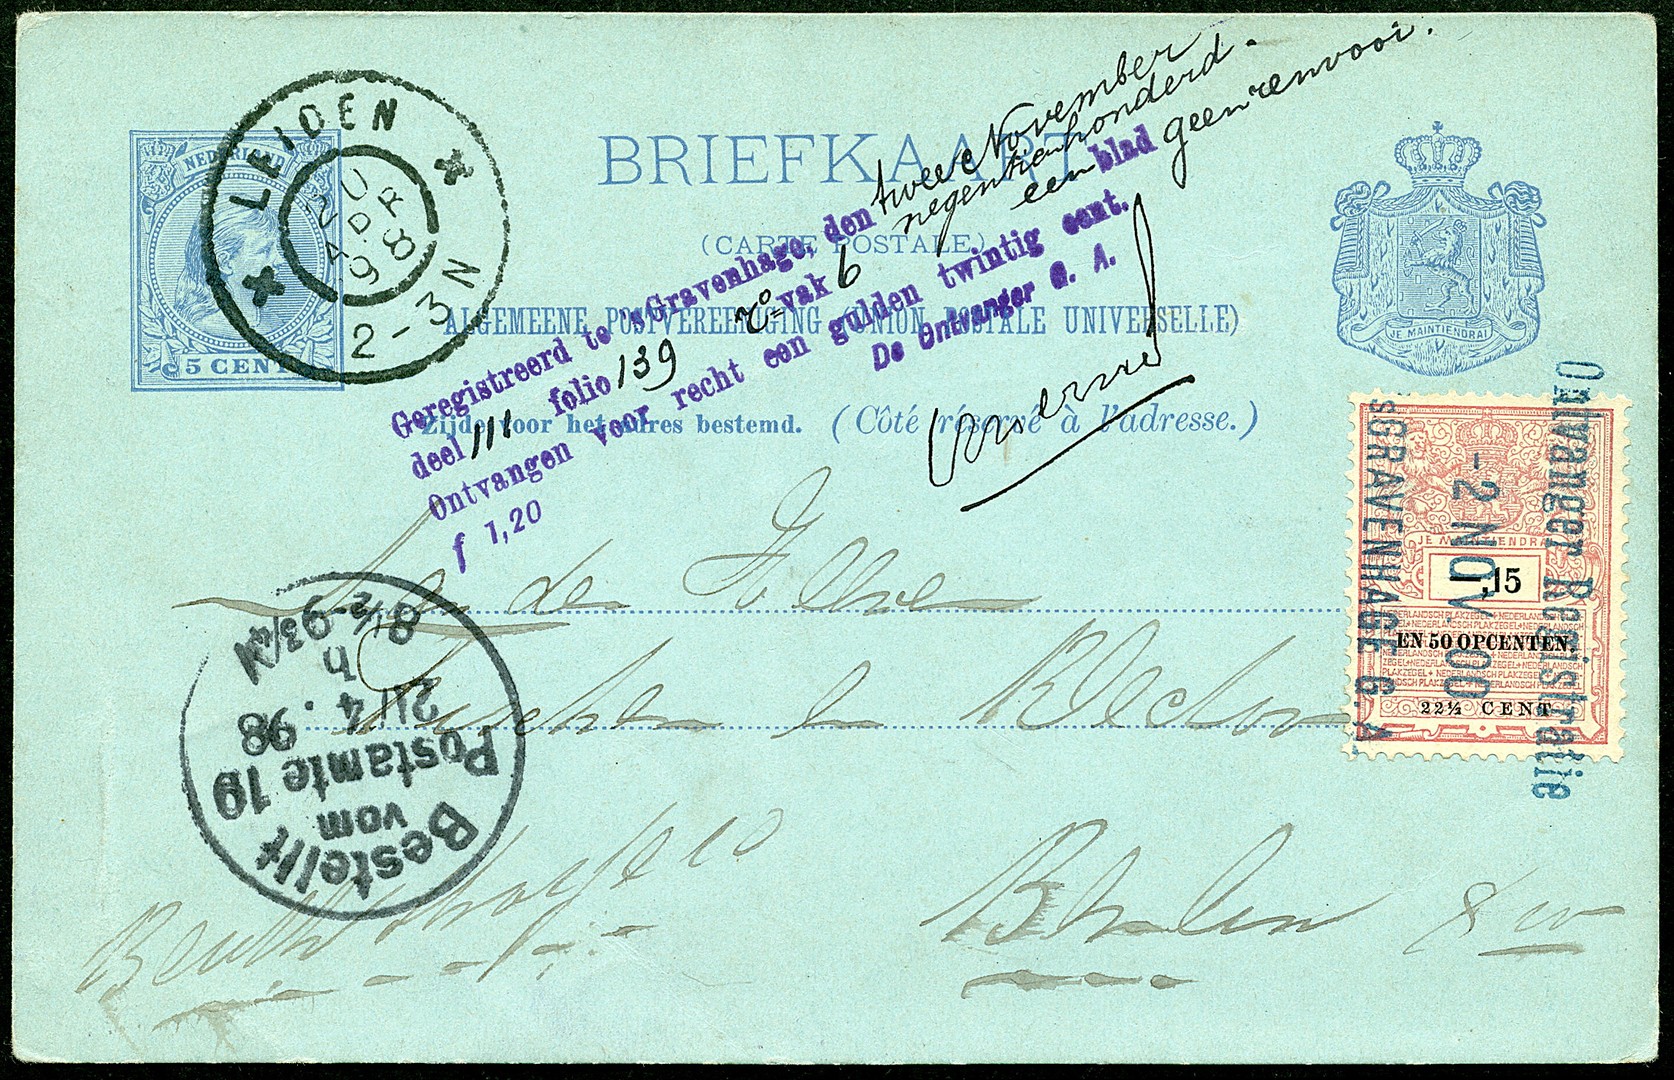 NEDERLAND
5 CENT
LEIDEN
20
APR
98
2-3N
BRIEFKAART
(CARTE POSTALE)
ALGEMEENE POSTVEREENIGING (UNION POSTALE UNIVERSELLE)
Zijde voor het adres bestemd. (Côté réservé à l'adresse.)
JE MAINTIENDRAI
Geregistreerd te 'sGravenhage, den twee November
negentienhonderd.
deel 111 folio 139 vak 6 een blad geen renvooi.
Ontvangen voor recht een gulden twintig cent.
f 1,20
De Ontvanger G. A.
JE MAINTIENDRAI
,15
EN 50 OPCENTEN.
22½ CENT
Ontvanger Registratie
-2 NOV. 00
SGRAVENHAGE G.A.
Bestellt
vom
Postamte 19
4 . 98
8½-9¾ N
An de
in
Berlin